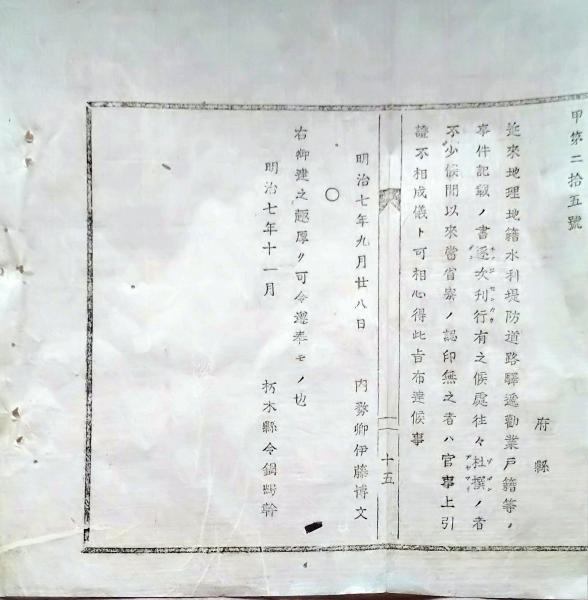 甲第二拾五號
府縣
近來地理地籍水利堤防道路驛遞勸業戸籍等ノ
事件記載ノ書逐次刊行有之候處往々杜撰ノ者
不少候間以來當省寮ノ認印無之者ハ官事上引
證不相成儀ト可相心得此旨布達候事
明治七年九月廿八日
内務卿伊藤博文
○
右御達之趣厚ク可令遵奉モノ也
明治七年十一月
栃木縣令鍋島幹
十五